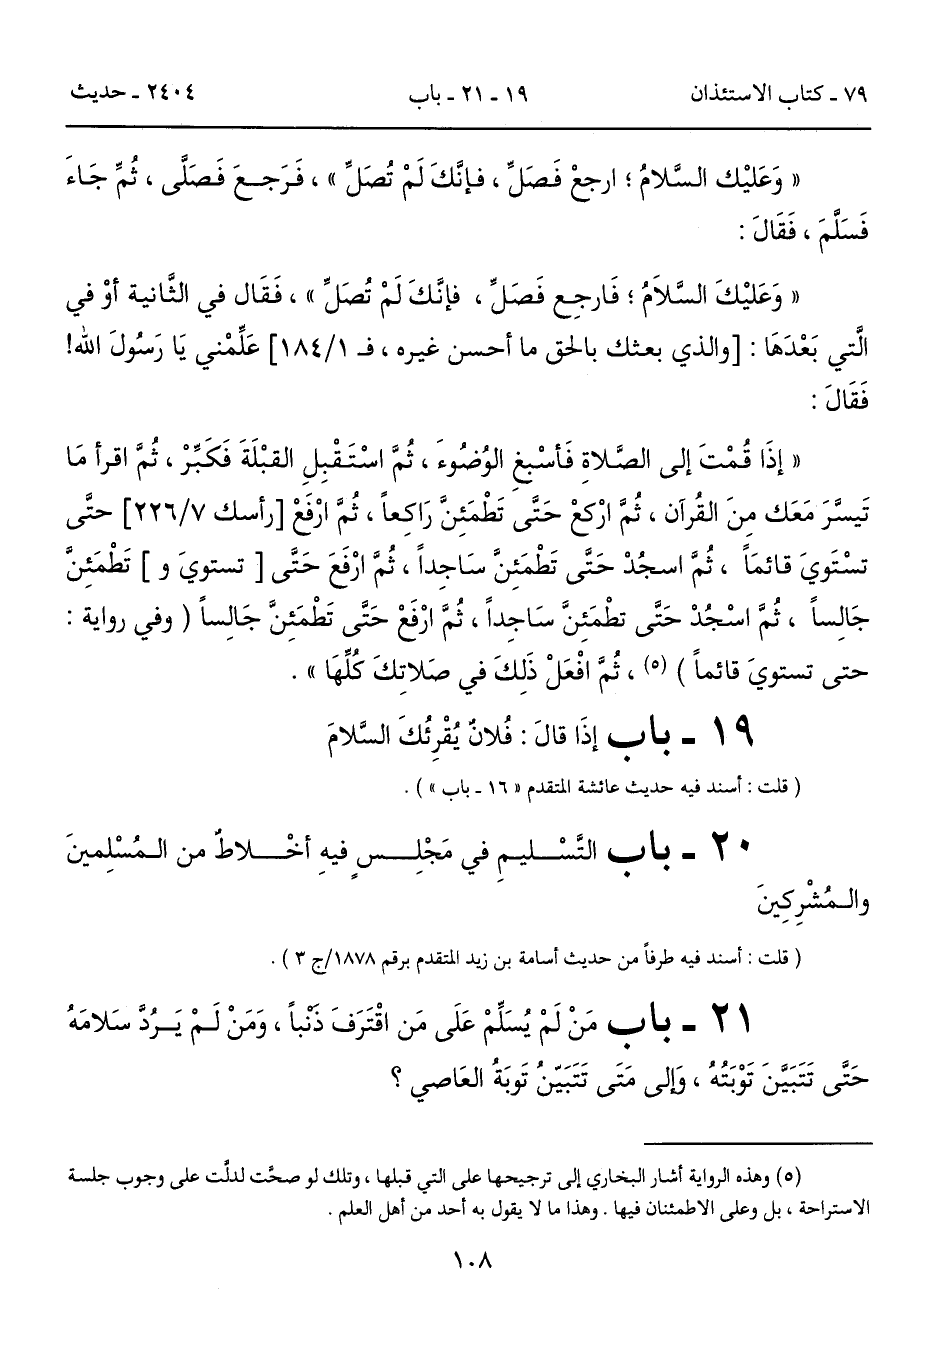 ٧٩ ـ كتاب الاستئذان ١٩ ـ ٢١ ـ باب ٢٤٠٤ ـ حديث
« وَعَلَيْك السَّلامُ ؛ ارجعْ فَصَلِّ ، فإنَّكَ لَمْ تُصَلِّ » ، فَرَجـعَ فَصَلَّى ، ثُمَّ جَاءَ
فَسَلَّمَ ، فَقَالَ :
« وَعَلَيْكَ السَّلاَمُ ؛ فَارجِع فَصَلِّ ، فإنَّكَ لَمْ تُصَلِّ » ، فَقَال في الثَّانية أوْ في
الَّتي بَعْدَهَا : [والذي بعثك بالحق ما أحسن غيره ، فـ ١/ ١٨٤] عَلِّمْني يَا رَسُولَ الله!
فَقَالَ :
« إذَا قُمْتَ إلى الصَّلاةِ فَأسْبغِ الوُضُوءَ ، ثُمَّ اسْتَقْبِلِ القبْلَةَ فَكَبِّرْ ، ثُمَّ اقرأ مَا
تَيسَّرَ مَعَك مِنَ القُرآن ، ثُمَّ ارْكعْ حَتَّى تَطْمَئِنَّ رَاكعاً ، ثُمَّ ارْفَعْ [رأسك ٧/ ٢٢٦] حتَّى
تسْتَويَ قائمَاً ، ثُمَّ اسجُدْ حَتَّى تَطْمَئنَّ سَاجداً ، ثُمَّ ارْفَعَ حَتَّى [ تستويَ و ] تَطْمَئنَّ
جَالِساً ، ثُمَّ اسْجُدْ حَتَّى تطْمَئنَّ سَاجداً ، ثُمَّ ارْفَعْ حَتَّى تَطْمَئنَّ جَالِساً ( وفي رواية :
حتى تستويَ قائماً ) (٥) ، ثُمَّ افْعَلْ ذَلِكَ في صَلاتِكَ كُلِّهَا » .
١٩ ـ باب إذَا قالَ : فُلانٌ يُقْرِئُكَ السَّلامَ
( قلت : أسند فيه حديث عائشة المتقدم « ١٦ ـ باب » ) .
٢٠ ـ باب التَّسْـــليمِ في مَجْلِـــسٍ فيهِ أخْـــلاطٌ من الـمُسْلِمينَ
والـمُشْرِكِينَ
( قلت : أسند فيه طرفاً من حديث أسامة بن زيد المتقدم برقم ١٨٧٨/ج ٣ ) .
٢١ ـ باب مَنْ لَمْ يُسَلِّمْ عَلَى مَن اقْتَرَفَ ذَنْباً ، وَمَنْ لَـمْ يَـرُدَّ سَلامَهُ
حَتَّى تَتَبَيَّنَ تَوْبَتُهُ ، وَإلى مَتَى تَتَبَيّنُ تَوبَةُ العَاصي ؟
(٥) وهذه الرواية أشار البخاري إلى ترجيحها على التي قبلها ، وتلك لو صحَّت لدلَّت على وجوب جلسة
الاستراحة ، بل وعلى الاطمئنان فيها . وهذا ما لا يقول به أحد من أهل العلم .
١٠٨